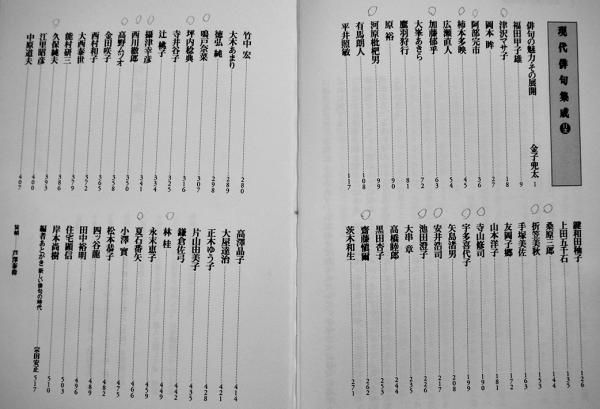 現代俳句集成 全一巻
俳句の魅力その展開 金子兜太 1
福田甲子雄 9
津沢マサ子 18
岡本眸 27
阿部完市 36
柿本多映 45
広瀬直人 54
加藤郁乎 63
大峯あきら 72
鷹羽狩行 81
原裕 90
河原枇杷男 99
有馬朗人 108
平井照敏 117
鍵和田秞子 126
上田五千石 135
桑原三郎 144
折笠美秋 153
手塚美佐 163
友岡子郷 172
山本洋子 181
寺山修司 190
宇多喜代子 199
矢島渚男 208
安井浩司 217
池田澄子 226
大串章 235
高橋睦郎 244
黒田杏子 253
齋藤愼爾 262
茨木和生 271
竹中宏 280
大木あまり 289
徳弘純 298
鳴戸奈菜 307
坪内稔典 316
寺井谷子 324
辻桃子 334
攝津幸彦 341
西川徹郎 350
高野ムツオ 358
金田咲子 365
西村和子 372
大西泰世 379
能村研三 386
久保純夫 393
江里昭彦 400
中原道夫 407
高澤晶子 414
大屋達治 421
正木ゆう子 428
片山由美子 435
鎌倉佐弓 442
林桂 449
永末恵子 459
夏石番矢 466
小澤實 475
松本恭子 482
四ッ谷龍 489
田中裕明 496
住宅顕信 503
岸本尚樹 510
編者あとがき・新しい俳句の時代 宗田安正 517
装幀 芦澤泰偉